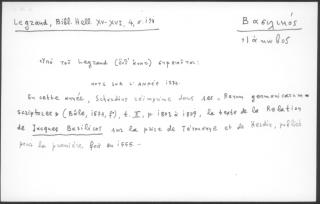 Legrand, Bibl. Hell. XV-XVI, 4, σ.
Βασιλικός
Ἰάκωβος
Ὑπὸ τοῦ Legrand
NOTE SUR L'ANNÉE 1574.
En cette année, Schardius réimprime dans ses « Rerum germanicarum
scriptores » (Bâle, 1574, fº), t. II, p. 1803 à 1809, le texte de la Relation
de Jacques Basilicos sur la prise de Térouenne et de Hesdin, publié
pour la première fois en 1555. –